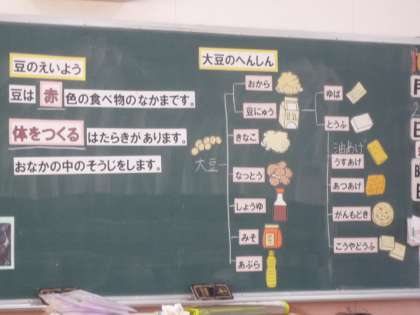 豆のえいよう
豆は 赤 色の食べ物のなかまです。
体をつくる はたらきがあります。
おなかの中のそうじをします。
大豆のへんしん
大豆
おから
豆にゅう
きなこ
なっとう
しょうゆ
みそ
あぶら
ゆば
とうふ
油あげ
うすあげ
あつあげ
がんもどき
こうやどうふ
月
日
曜